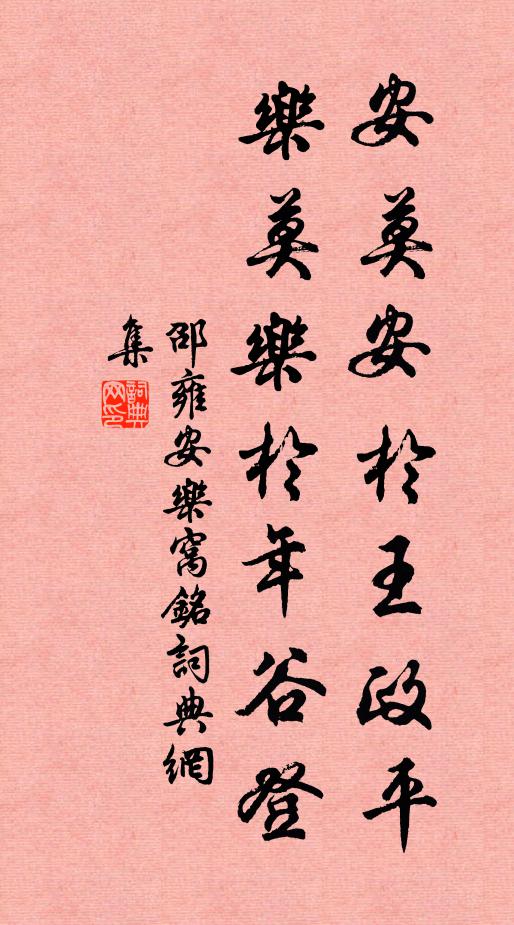 安莫安於王政平
樂莫樂於年谷登
邵雍安樂窩銘詞典網
集
詞典
网印